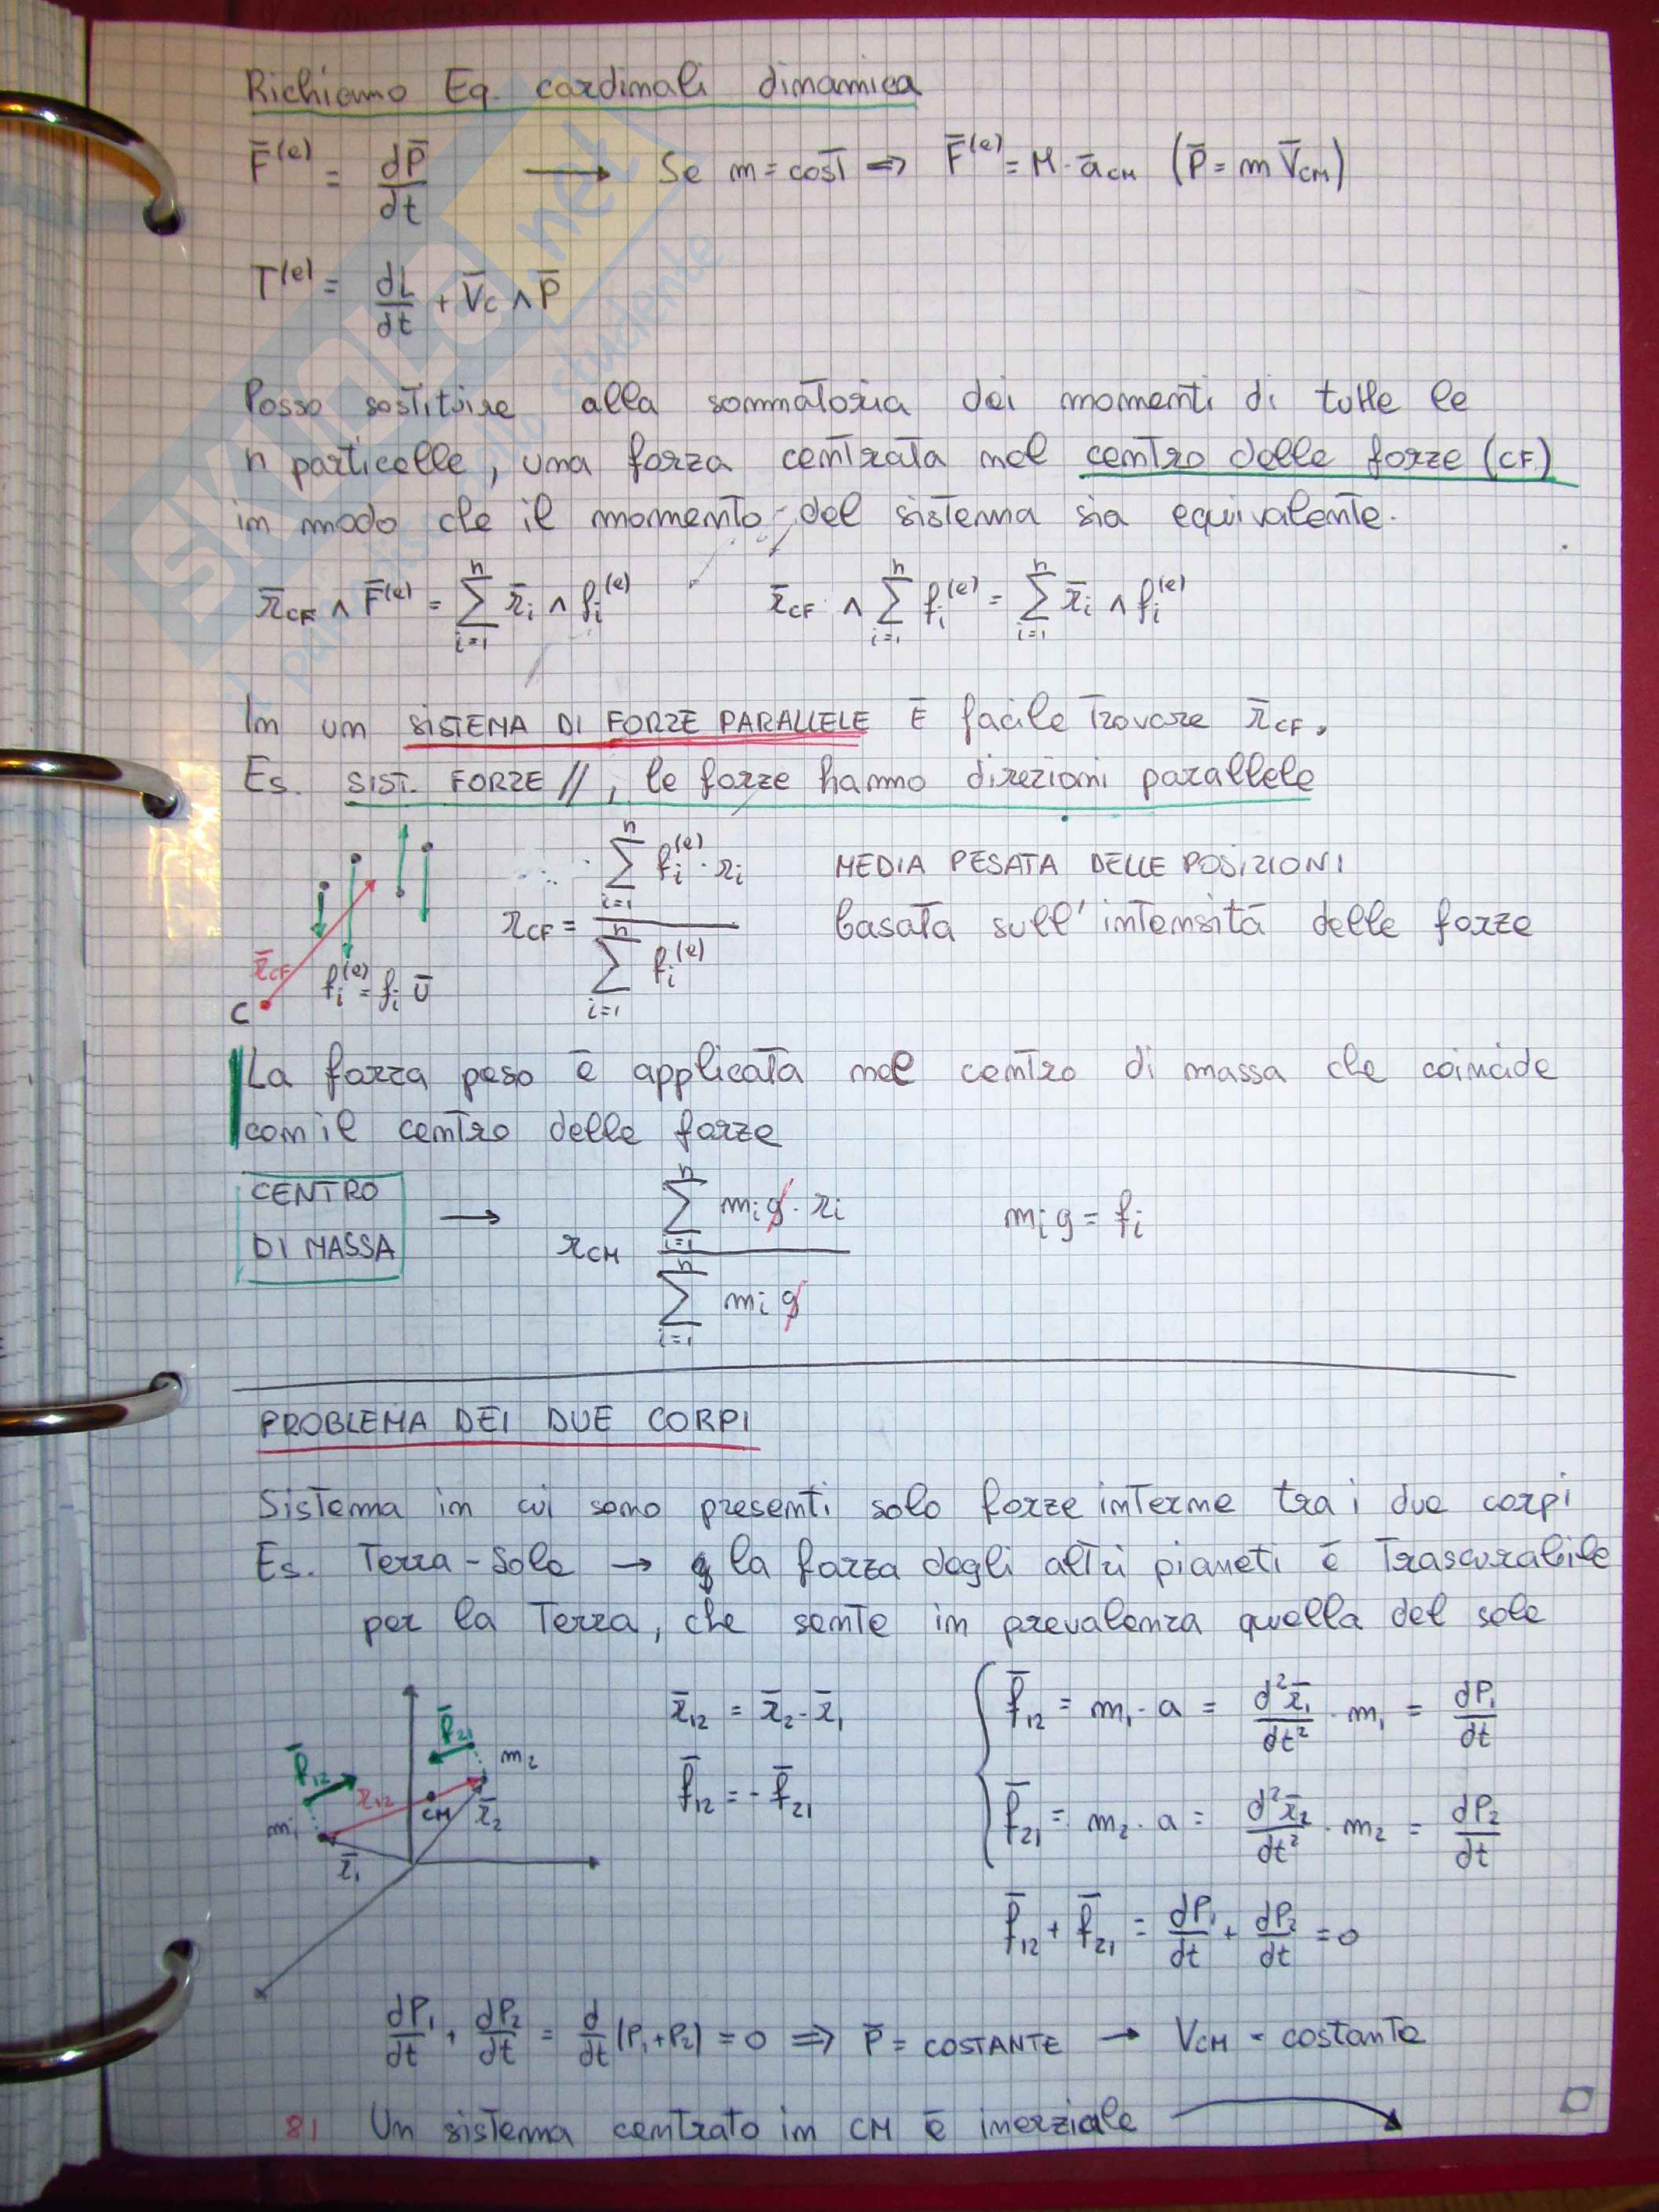 Richiamo Eq. cardinali dinamica
F̄⁽ᵉ⁾ = dP̄/dt → Se m = cost ⇒ F̄⁽ᵉ⁾ = M · ā_CM (P̄ = m V̄_CM)
T⁽ᵉ⁾ = dL/dt + V̄c ∧ P̄
Posso sostituire alla sommatoria dei momenti di tutte le
n particelle, una forza centrata nel centro delle forze (CF)
in modo che il momento del sistema sia equivalente.
r̄_CF ∧ F̄⁽ᵉ⁾ = Σ_{i=1}^{n} r̄i ∧ fi⁽ᵉ⁾   r̄_CF ∧ Σ_{i=1}^{n} fi⁽ᵉ⁾ = Σ_{i=1}^{n} r̄i ∧ fi⁽ᵉ⁾
In un SISTEMA DI FORZE PARALLELE È facile trovare r̄_CF.
Es. SIST. FORZE //, le forze hanno direzioni parallele
r_CF = Σ_{i=1}^{n} fi⁽ᵉ⁾ · ri / Σ_{i=1}^{n} fi⁽ᵉ⁾
MEDIA PESATA DELLE POSIZIONI
basata sull'intensità delle forze
r̄_CF
fi⁽ᵉ⁾ = fi ū
C
La forza peso è applicata nel centro di massa che coincide
con il centro delle forze
CENTRO
DI MASSA
→ r_CM Σ_{i=1}^{n} mi g · ri / Σ_{i=1}^{n} mi g   mi g = fi
PROBLEMA DEI DUE CORPI
Sistema in cui sono presenti solo forze interne tra i due corpi
Es. Terra-Sole → la forza degli altri pianeti è trascurabile
per la Terra, che sente in prevalenza quella del sole
r̄12 = r̄2 - r̄1
f̄12 = - f̄21
f̄12 = m1 · a = d²r̄1/dt² · m1 = dP1/dt
f̄21 = m2 · a = d²r̄2/dt² · m2 = dP2/dt
f̄12 + f̄21 = dP1/dt + dP2/dt = 0
f̄21
m2
f̄12
r12
CM
r̄2
m1
r̄1
dP1/dt + dP2/dt = d/dt (P1 + P2) = 0 ⇒ P̄ = COSTANTE → V_CM = costante
81 Un sistema centrato in CM è inerziale
SKUOLA.net